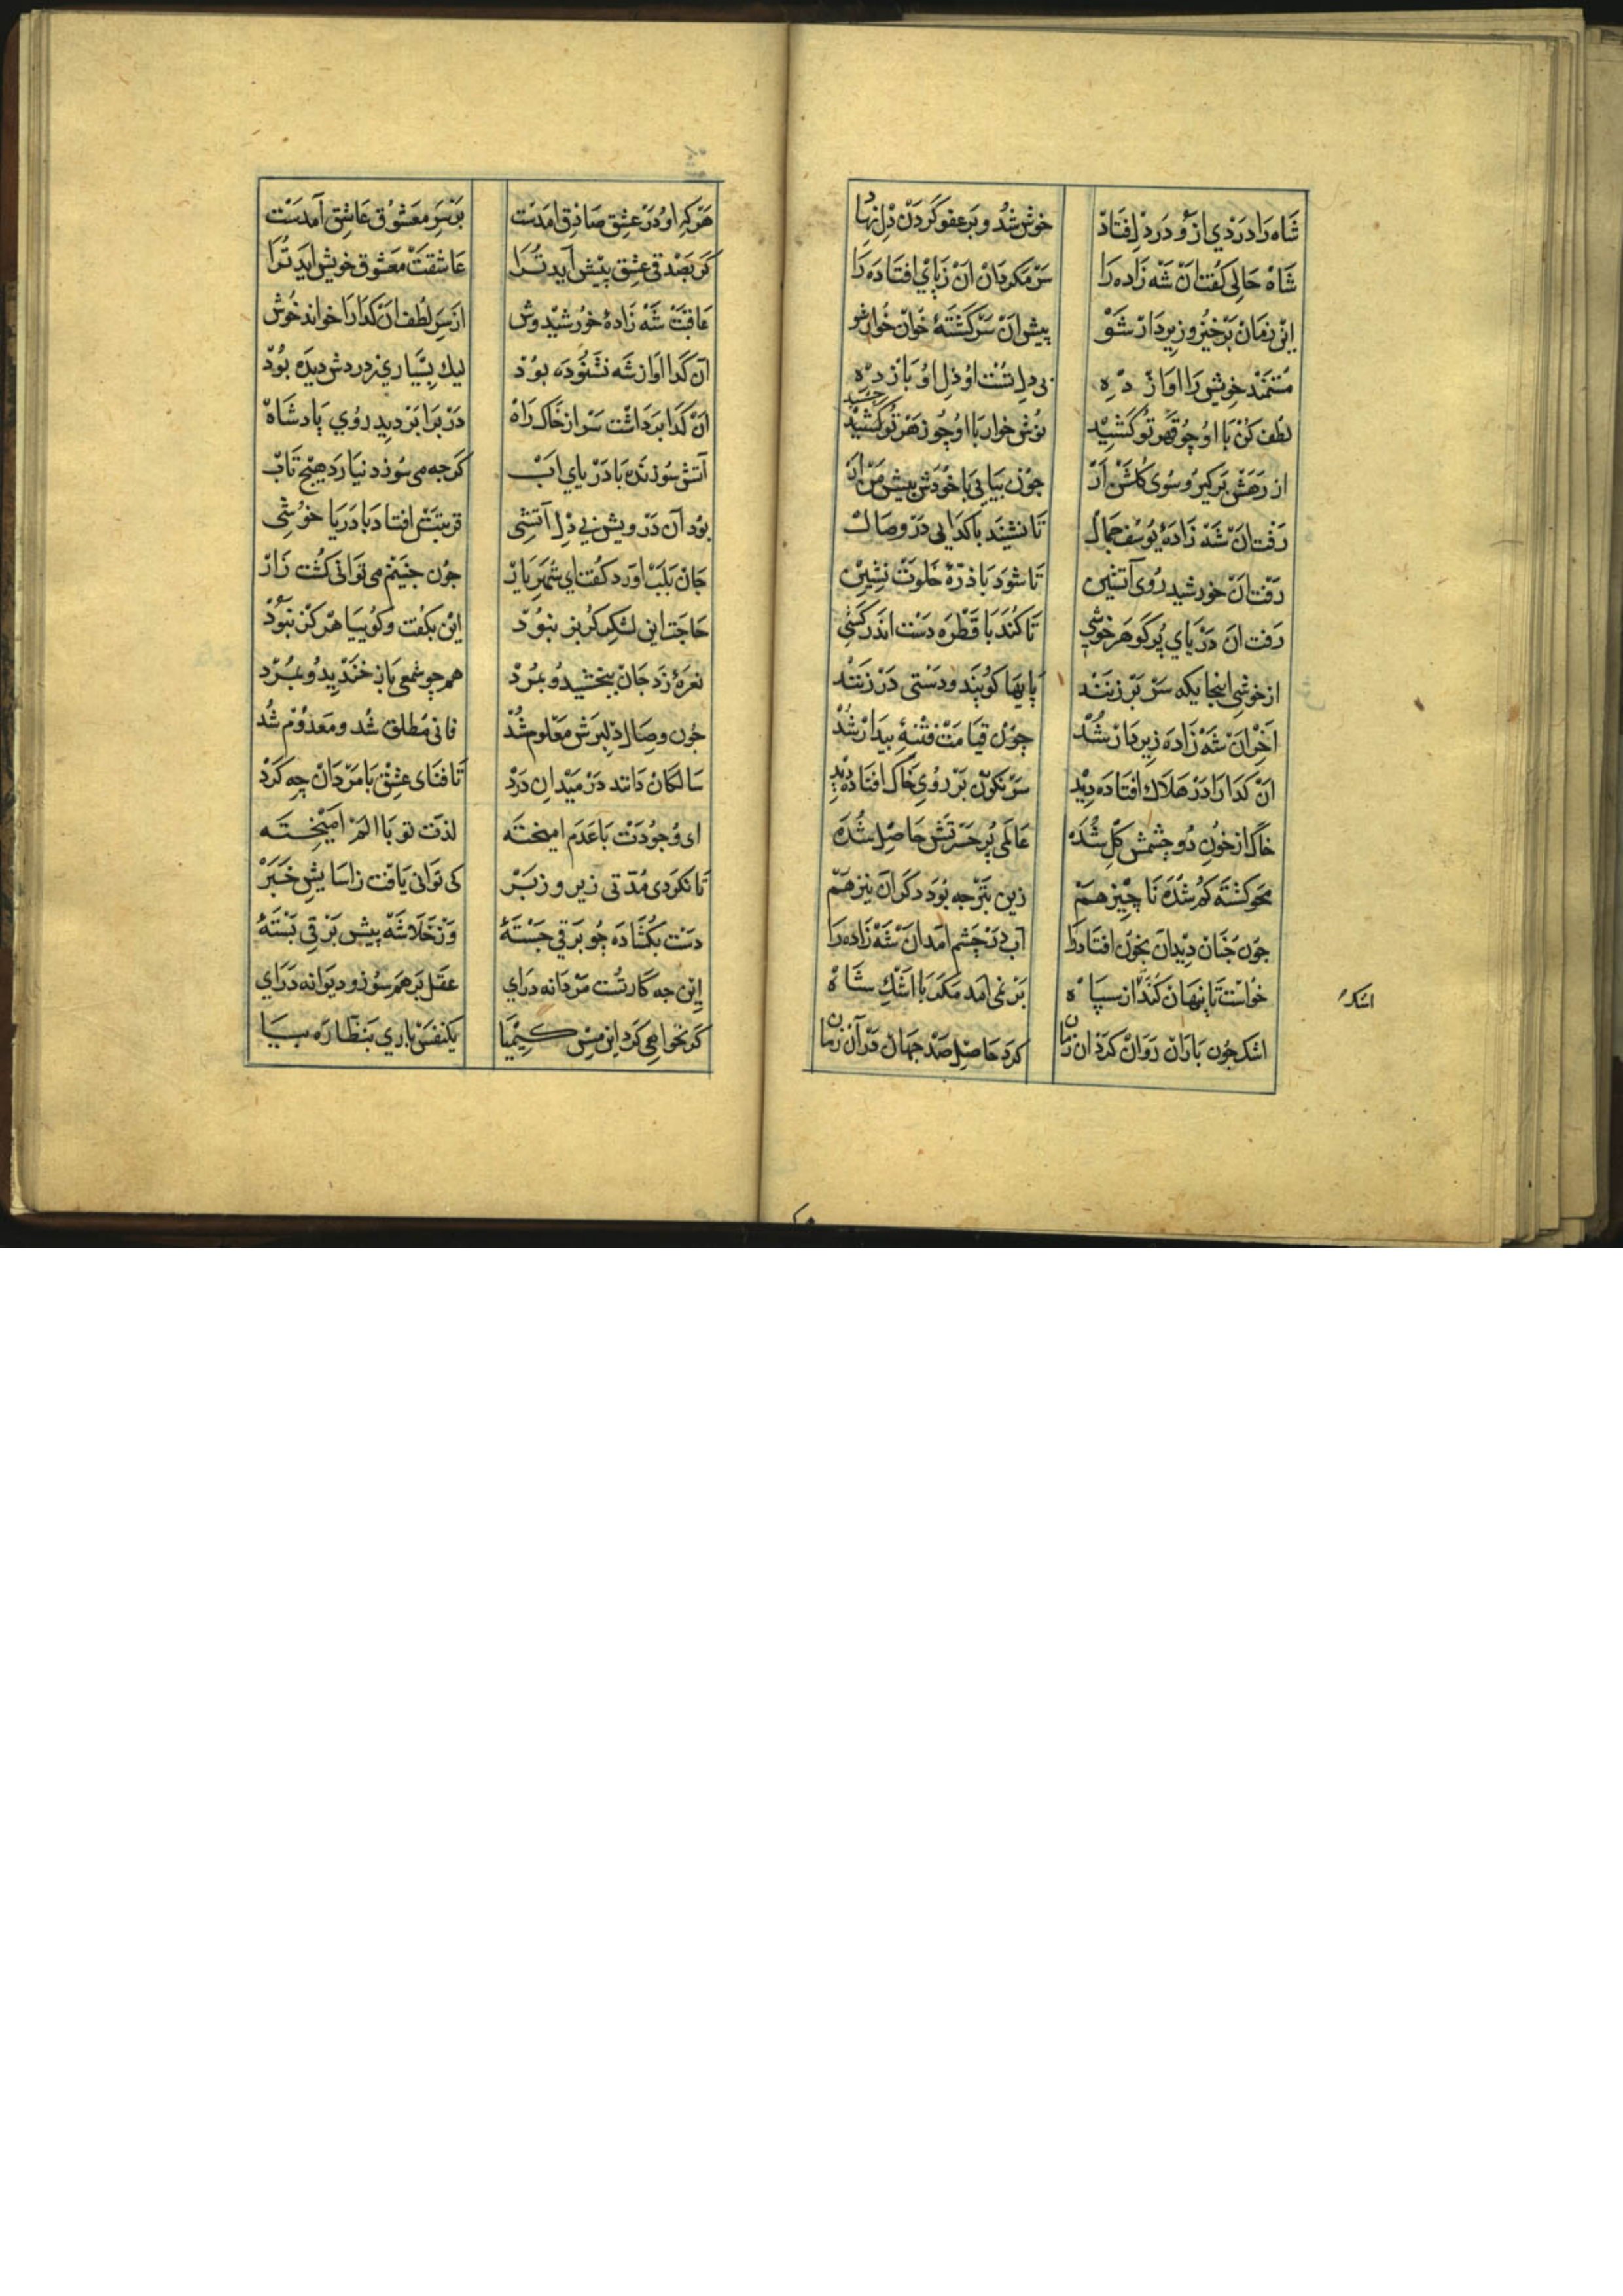 شاه را دردی ازو در دل فتاد خوش شد و بر عفو کردن دل نهاد
شاه حالی کفت ان شه زاده را سر مکردان ان ز پای افتاده را
این زمان برخیز و زیر دار شو پیش ان سرکشتهٔ خوار شو
مستمند خویش را اواز ده بی دل تست او دل او باز ده
لطف کن با او چو قهر تو کشید نوش خوار با او چو زهر تو کشید چشید
از رهش برکیر و سوی کلشن ار چون بیایی با خودش پیش من ار
رفت ان شه زادهٔ یوسف جمال تا نشیند با کدایی در وصال
رفت ان خورشید روی آتشین تا شود با ذرهٔ خلوت نشین
رفت ان دریای پر کوهر خوشی تا کند با قطره دست اندر کشی
از خوشی اینجایکه سر بر زنند پایها کوبند و دستی در زنند
اخر ان شه زاده زیر دار شد چون قیامت فتنهٔ بیدار شد
ان کدا را در هلاک افتاده دید سر نکون بر روی خاک افتاده دید
خاک از خون دو چشمش کل شده عالمی پر حسرتش حاصل شده
محو کشته کم شده ناچیز هم زین بتر چه بود دکر ان نیز هم
چون چنان دید ان بخون افتاده را آب در چشم امد ان شه زاده را
خواست تا پنهان کند از سپاه بر نمی امد مکر با اشک شاه
اشک
اشک چون باران روان کرد ان زمان کرد حاصل صد جهان در آن زمان
هر که او در عشق صادق امدست بر سر معشوق عاشق آمدست
کر بصدقی عشق پیش آید ترا عاشقت معشوق خویش اید ترا
عاقبت شه زادهٔ خورشیدوش از سر لطف ان کدا را خواند خوش
آن کدا اواز شه نشنوده بود لیك بسیاری ز دردش دیده بود
ان کدا برداشت سر از خاک راه در برابر دید روی پادشاه
آتش سوزنده با دریای اب کر چه می سوزد نیارد هیچ تاب
بود آن درویش بی دل آتشی قربتش افتاد با دریا خوشی
جان بلب اورد کفت ای شهریار چون چنینم می توانی کشت زار
حاجت این لشکر کربز نبود این بکفت و کوییا هرکز نبود
نعرهٔ زد جان ببخشید و بمرد همچو شمعی باز خندید و بمرد
چون وصال دلبرش معلوم شد فانی مطلق شد و معدوم شد
سالکان دانند در میدان درد تا فنای عشق با مردان چه کرد
ای وجودت با عدم امیخته لذت تو با الم امیخته
تا نکردی مدتی زیر و زبر کی توانی یافت ز اسایش خبر
دست بکشاده چو برقی جستهٔ وز خلاشه پیش برقی بستهٔ
این چه کار تست مردانه درای عقل بر هم سوز و دیوانه درای
کر نخواهی کرد این مس کیمیا یکنفس باری بنظاره بیا